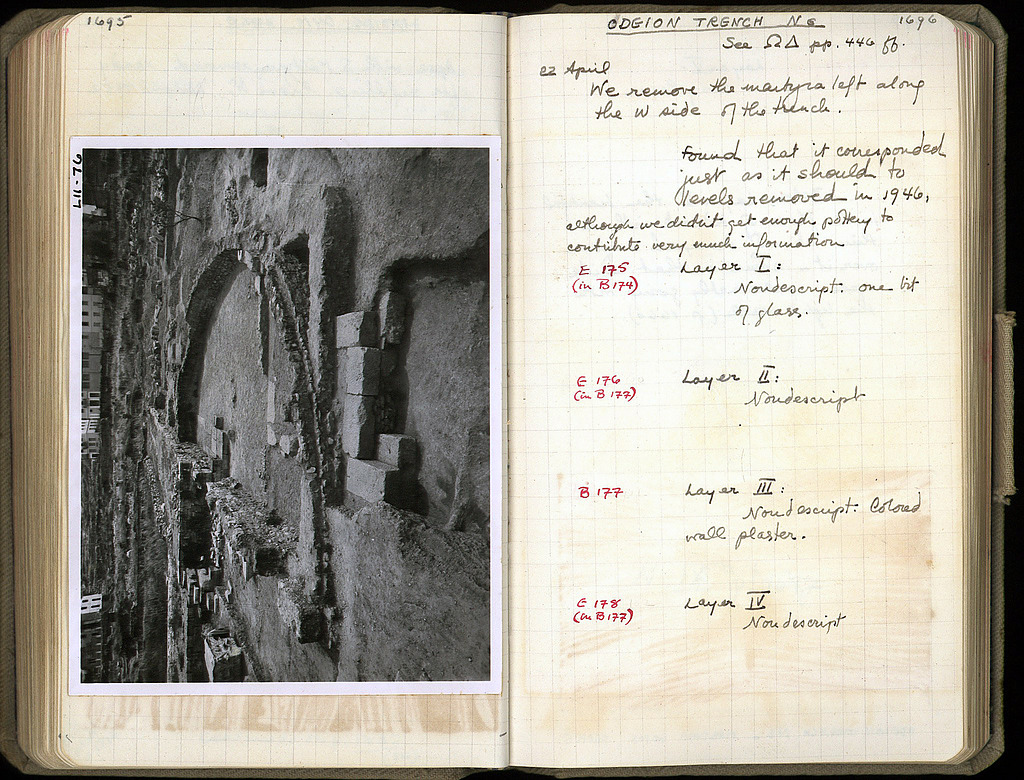 1695
LII-76
ODEION TRENCH N6
1696
See ΩΔ pp. 446 ff.
22 April
We remove the martyra left along
the W side of the trench.
Found that it corresponded
just as it should to
levels removed in 1946,
although we didn't get enough pottery to
contribute very much information
E 175
(in B 174)
Layer I:
Nondescript: one bit
of glass.
E 176
(in B 177)
Layer II:
Nondescript
B 177
Layer III:
Nondescript: Colored
wall plaster.
E 178
(in B 177)
Layer IV
Nondescript